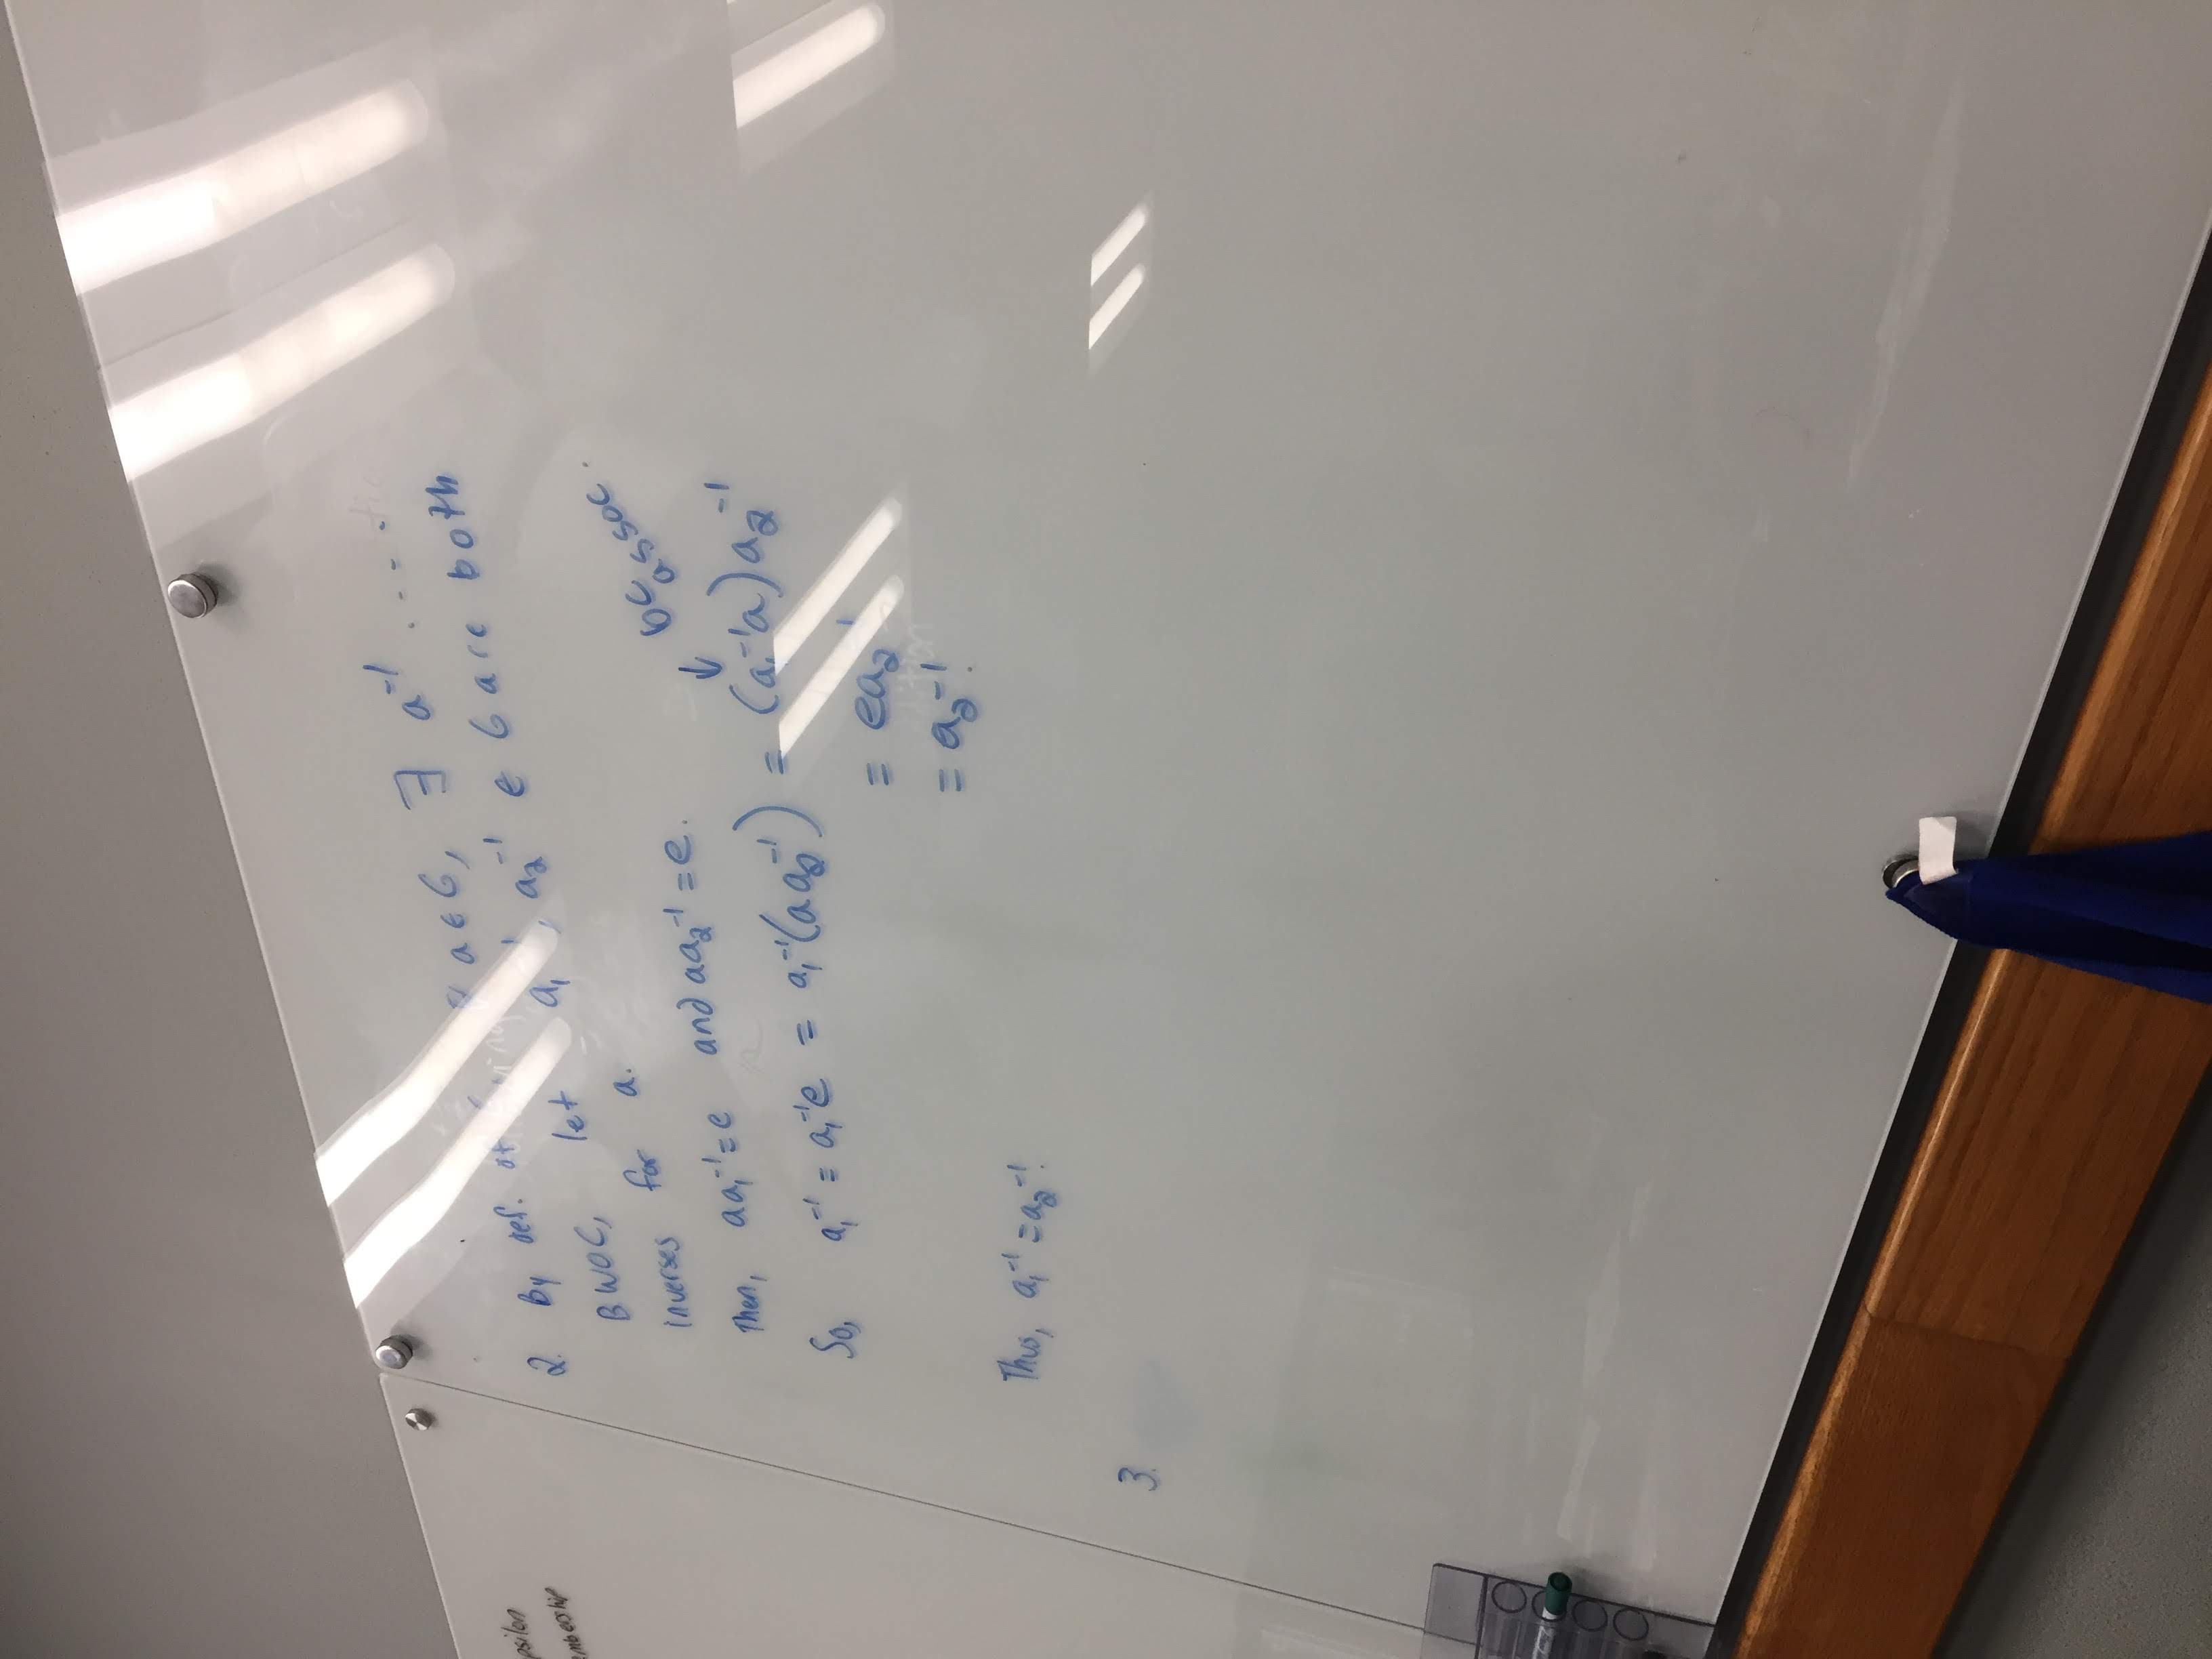 psilon
mbership
2. By def. of G, ∀ a ∈ G, ∃ a⁻¹ ....
BWOC, let a₁⁻¹, a₂⁻¹ ∈ G are both
inverses for a.
Then, aa₁⁻¹ = e and aa₂⁻¹ = e.
bc assoc.
↓
So, a₁⁻¹ = a₁⁻¹e = a₁⁻¹(aa₂⁻¹) = (a₁⁻¹a)a₂⁻¹
= ea₂⁻¹
= a₂⁻¹.
Thus, a₁⁻¹ = a₂⁻¹.
3.